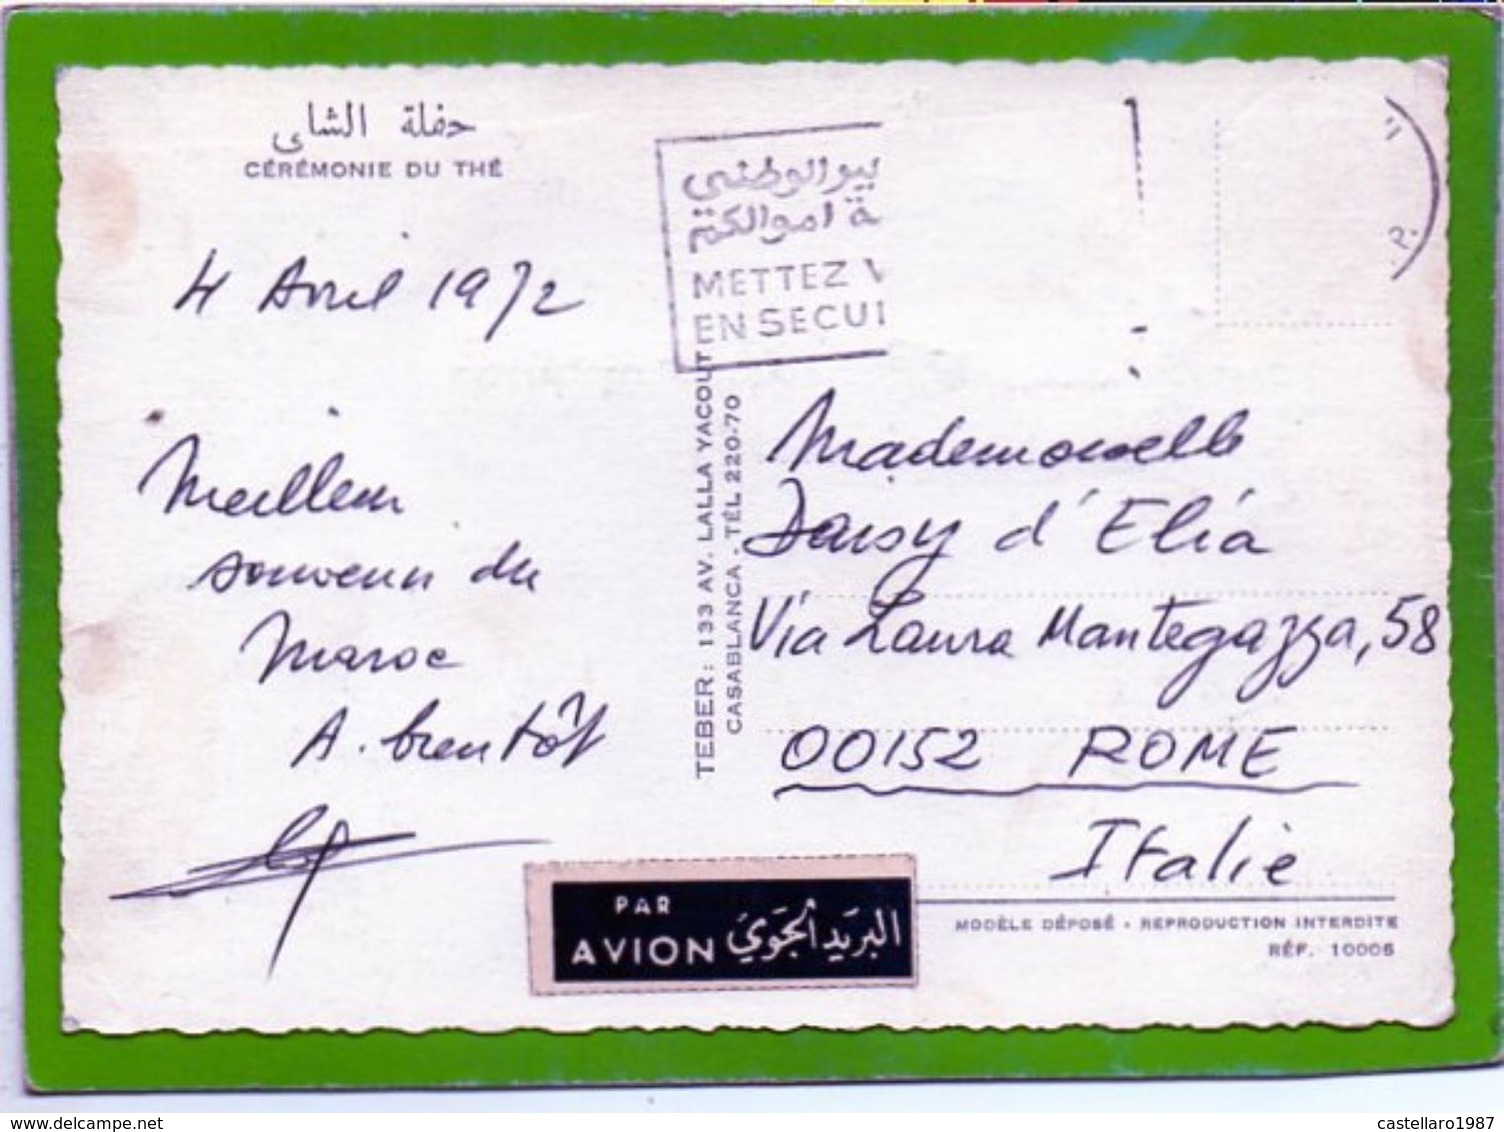 حفلة الشاى
CÉRÉMONIE DU THÉ
4 Avril 1972
Meilleur
souvenir du
Maroc
A. bientôt
TEBER : 133 AV. LALLA YACOUT
CASABLANCA . TÉL 220-70
اموالكم
METTEZ V
EN SECUI
Mademoiselle
Daisy d'Elia
Via Laura Mantegazza, 58
00152 ROME
Italie
PAR
AVION
البريد الجوي
MODÈLE DÉPOSÉ - REPRODUCTION INTERDITE
RÉF. 10006
castellaro1987